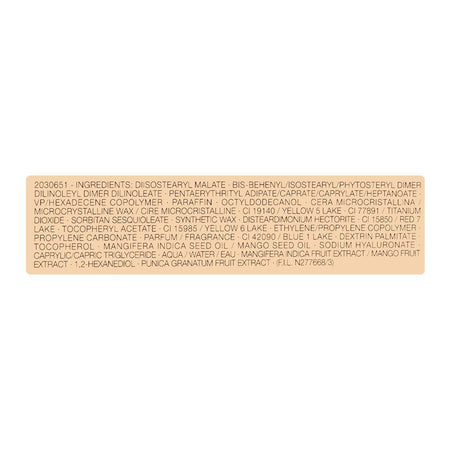 2030651 - INGREDIENTS: DIISOSTEARYL MALATE · BIS-BEHENYL/ISOSTEARYL/PHYTOSTERYL DIMER
DILINOLEYL DIMER DILINOLEATE · PENTAERYTHRITYL ADIPATE/CAPRATE/CAPRYLATE/HEPTANOATE ·
VP/HEXADECENE COPOLYMER · PARAFFIN · OCTYLDODECANOL · CERA MICROCRISTALLINA /
MICROCRYSTALLINE WAX / CIRE MICROCRISTALLINE · CI 19140 / YELLOW 5 LAKE · CI 77891 / TITANIUM
DIOXIDE · SORBITAN SESQUIOLEATE · SYNTHETIC WAX · DISTEARDIMONIUM HECTORITE · CI 15850 / RED 7
LAKE · TOCOPHERYL ACETATE · CI 15985 / YELLOW 6 LAKE · ETHYLENE/PROPYLENE COPOLYMER ·
PROPYLENE CARBONATE · PARFUM / FRAGRANCE · CI 42090 / BLUE 1 LAKE · DEXTRIN PALMITATE ·
TOCOPHEROL · MANGIFERA INDICA SEED OIL / MANGO SEED OIL · SODIUM HYALURONATE ·
CAPRYLIC/CAPRIC TRIGLYCERIDE · AQUA / WATER / EAU · MANGIFERA INDICA FRUIT EXTRACT / MANGO FRUIT
EXTRACT · 1,2-HEXANEDIOL · PUNICA GRANATUM FRUIT EXTRACT · (F.I.L. N277668/3)